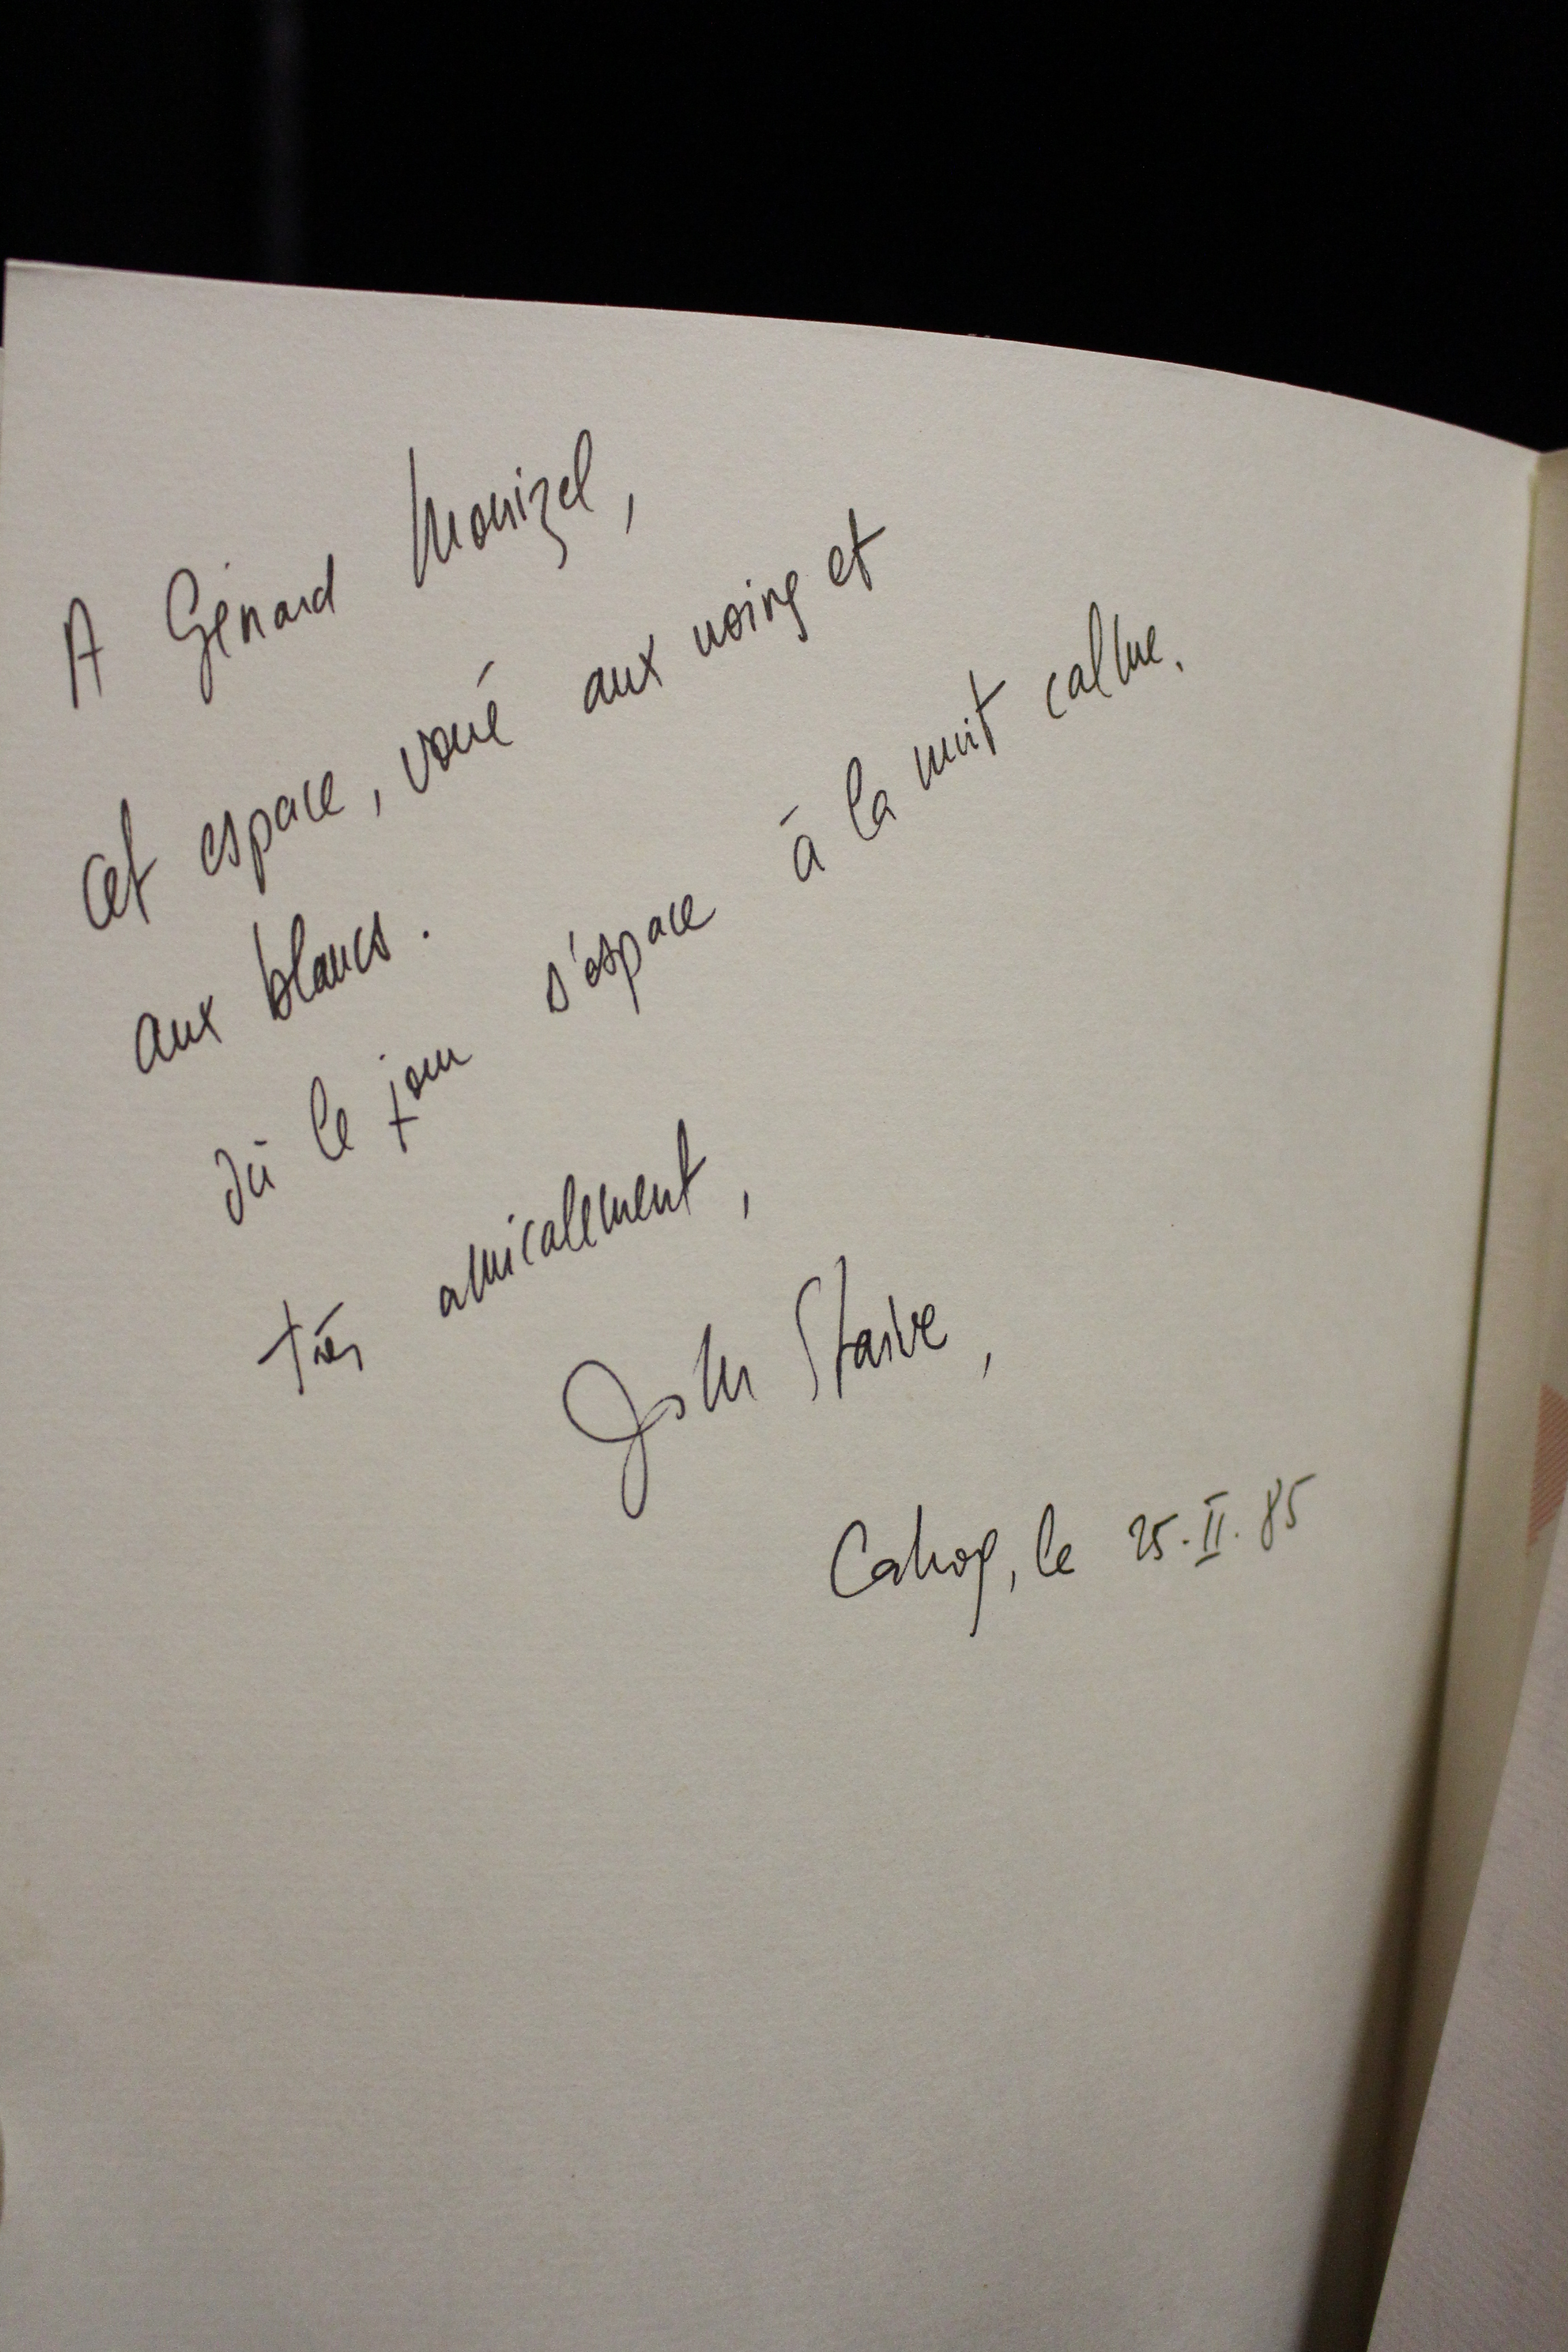 A Gérard Mourizel,
cet espace, voué aux noirs et
aux blancs.
où le jour s'espace à la nuit calme.
très amicalement,
John Staive,
Cahors, le 25.II.85